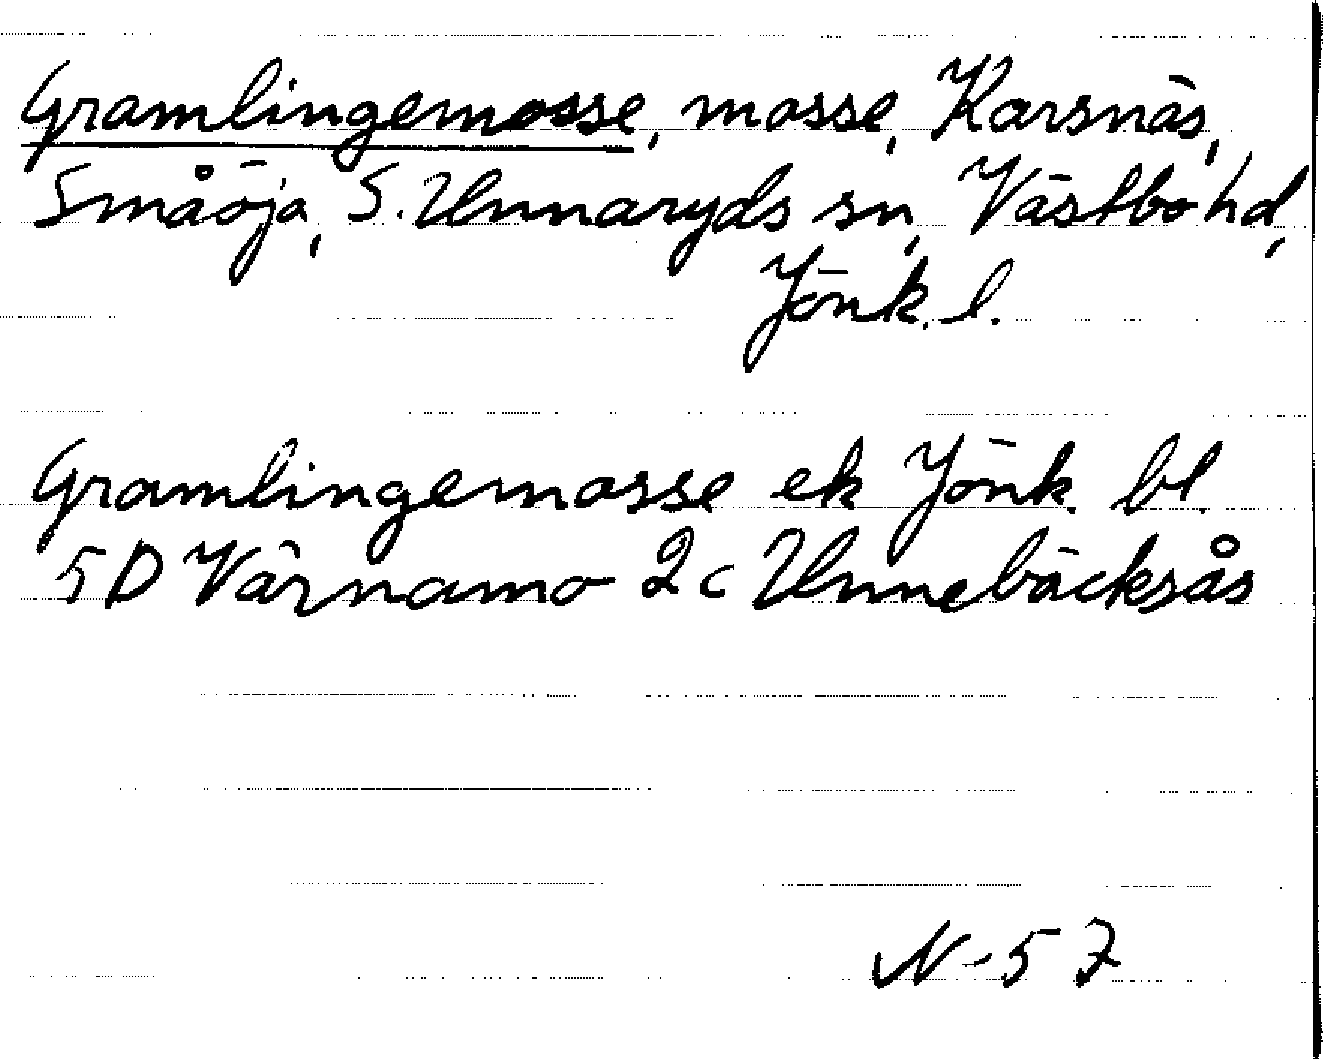 Gramlingemosse, mosse, Karsnäs,
Småöja, S. Unnaryds sn, Västbo hd,
Jönk. l.
Gramlingemosse ek Jönk. bl.
5D Värnamo 2c Unnebäcksås
N-57